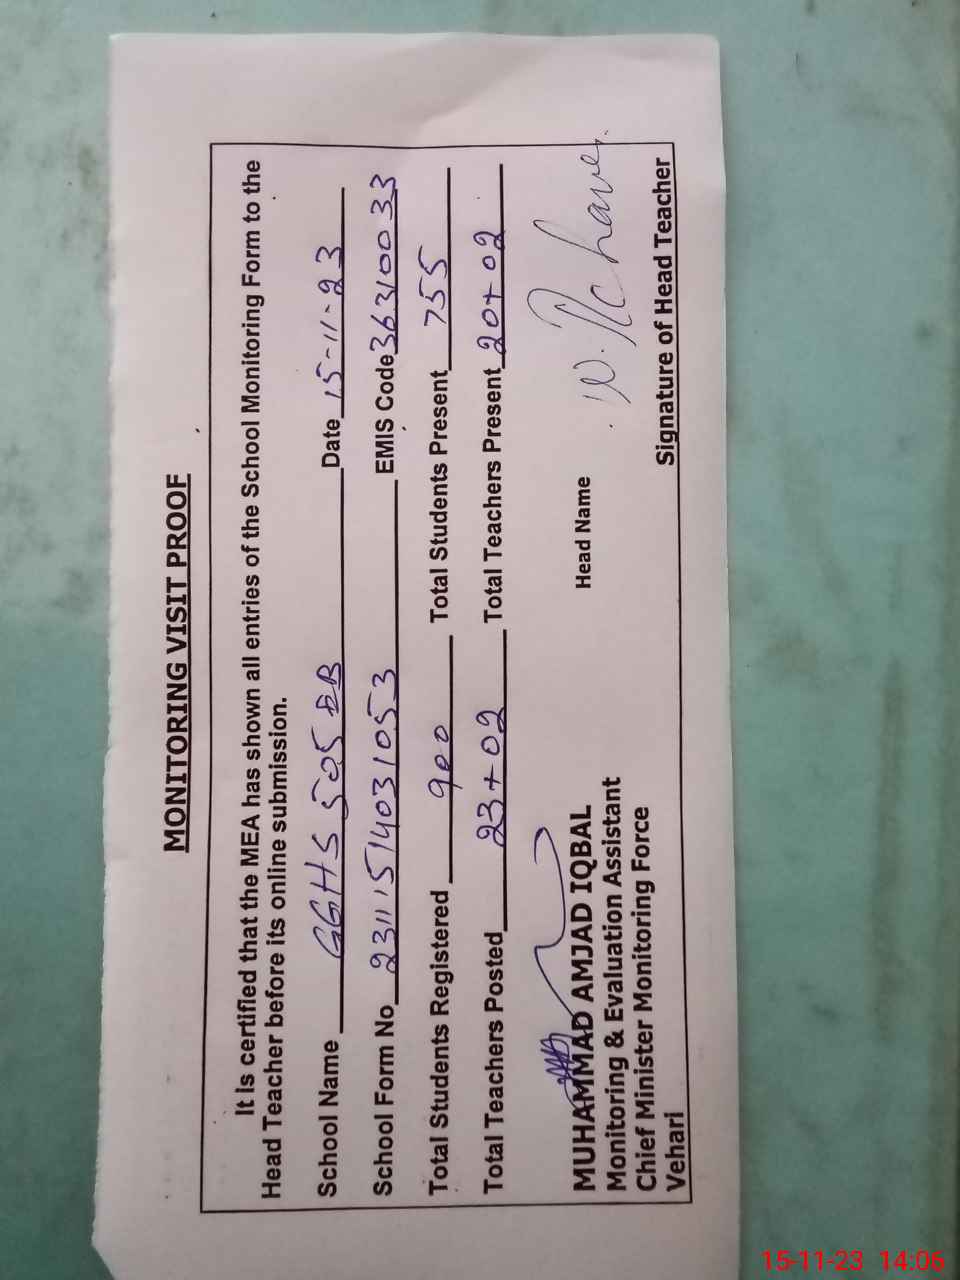 MONITORING VISIT PROOF
It Is certified that the MEA has shown all entries of the School Monitoring Form to the
Head Teacher before its online submission.
School Name GGHS 505 EB Date 15-11-23
School Form No 231115140310 53 EMIS Code 36310033
Total Students Registered 900 Total Students Present 755
Total Teachers Posted 23+02 Total Teachers Present 20+02
MUHAMMAD AMJAD IQBAL Head Name
Monitoring & Evaluation Assistant
Chief Minister Monitoring Force
Vehari Signature of Head Teacher
15-11-23 14:06